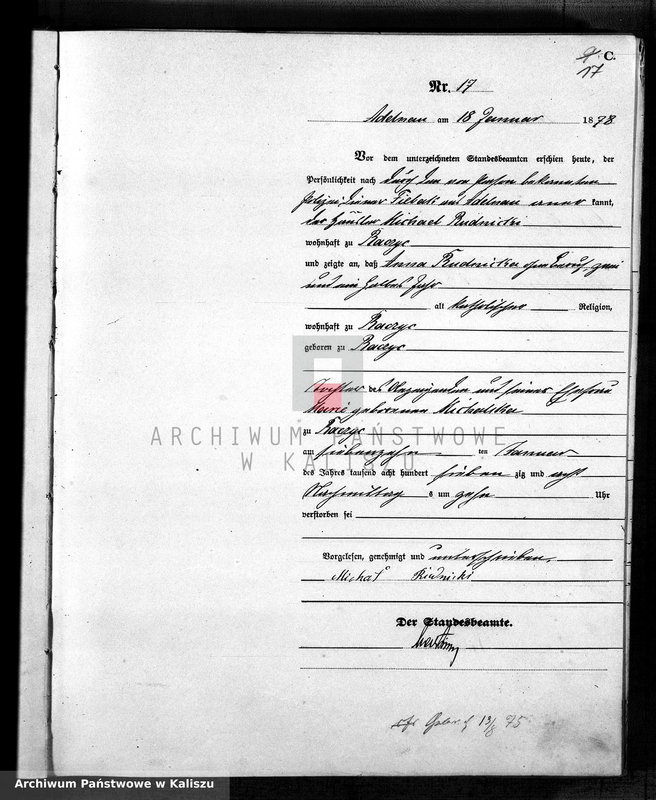 C.
17
Nr. 17
Adelnau am 18 Januar 1878
Vor dem unterzeichneten Standesbeamten erschien heute, der
Persönlichkeit nach durch den von Person bekannten
Polizei Diener aus Adelnau kannt,
der Häusler Michael Rudnicki
wohnhaft zu Raczyc
und zeigte an, daß Anna Rudnicka ohne Beruf, zwei
und ein halbes Jahr
alt katholischer Religion,
wohnhaft zu Raczyc
geboren zu Raczyc
Tochter des Anzeigenden und seiner Ehefrau
Marie geborenen Michalska
zu Raczyc
ARCHIWUM PAŃSTWOWE
W KALISZU
am siebenzehn ten Januar
des Jahres tausend acht hundert sieben zig und acht
Nachmittag s um zehn Uhr
verstorben sei
Vorgelesen, genehmigt und unterschrieben
Michał Rudnicki
Der Standesbeamte.
13/8 75
Archiwum Państwowe w Kaliszu